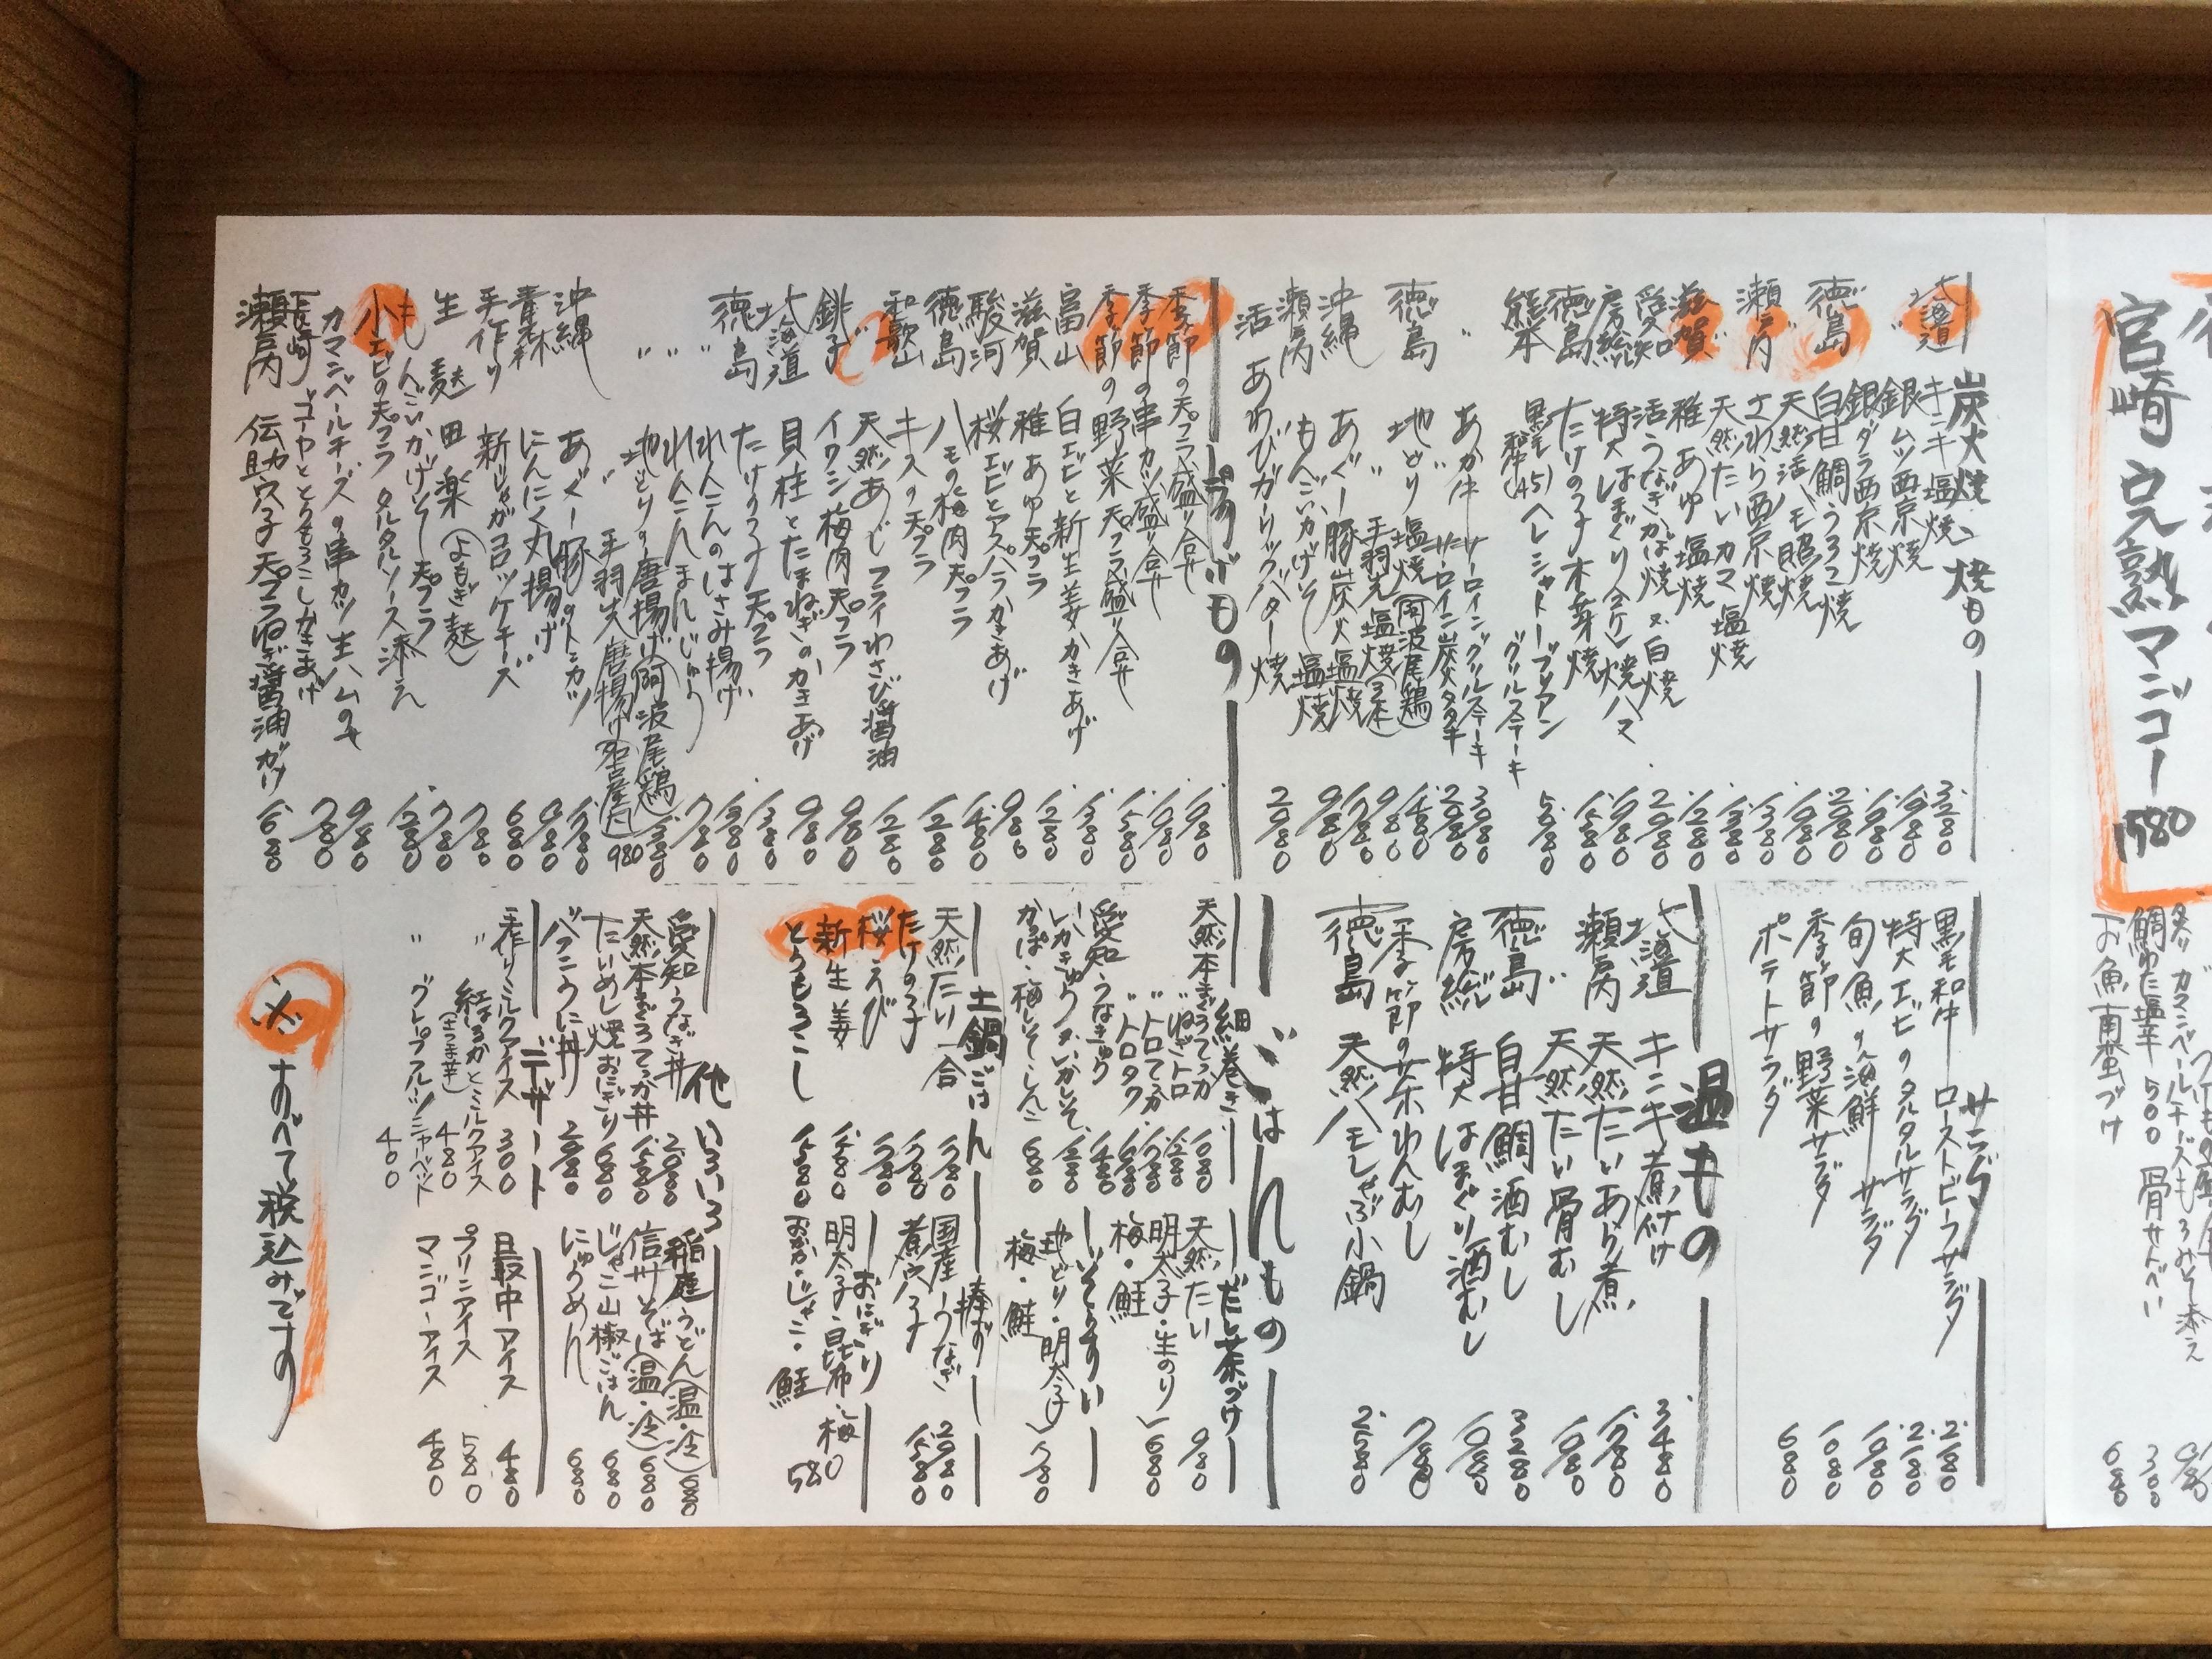 宮崎 完熟マンゴー 1580
鯛わた塩辛 500 骨せんべい 300
お魚南蛮づけ 680
炭火焼、焼もの
北海道 キンキ塩焼 3.280
〃 銀ムツ西京焼 1.980
銀ダラ西京焼 1.980
徳島 白甘鯛うろこ焼 2.880
〃 天然活ハモ照焼 1.980
瀬戸内 さわら西京焼 1.380
〃 天然たいカマ塩焼 1.380
滋賀 稚あゆ塩焼 1.280
愛知 活うなぎかば焼 又、白焼 2.980
房総 特大はまぐり(2ケ)焼ハマ 1.980
徳島 たけの子木の芽焼 1.580
熊本 黒毛和牛(A5)ヘレシャトーブリアン
グリルステーキ 5.880
〃 あか牛 サーロイングリルステーキ 3.080
サーロイン炭火タタキ 2.980
徳島 地どり塩焼(阿波尾鶏) 1.480
〃 手羽先塩焼(3本) 980
沖縄 あぐー豚炭火塩焼 1.780
瀬戸内 もんごいかげそ塩焼 980
活あわびガーリックバター焼 2.980
揚げもの
季節の天プラ盛り合せ 1.980
季節の串カツ盛り合せ 1.080
季節の野菜天プラ盛り合せ 1.580
富山 白エビと新生姜かきあげ 1.380
滋賀 稚あゆ天プラ 1.280
駿河 桜エビとアスパラかきあげ 980
徳島 ハモの梅肉天プラ 1.480
和歌山 キスの天プラ 1.280
天然あじフライわさび醤油 1.280
銚子 イワシ梅肉天プラ 980
北海道 貝柱とたまねぎのかきあげ 980
徳島 たけの子天プラ 1.380
〃 れんこんのはさみ揚げ 1.380
〃 れんこんまんじゅう 780
〃 地どりの唐揚げ(阿波尾鶏) 1.380
〃 手羽先唐揚げ(名古屋風) 980
沖縄 あぐー豚のトンカツ 1.780
青森 にんにく丸揚げ 980
手作り 新じゃがコロッケチーズ 680
生麩田楽(よもぎ麩) 780
もんごいかげそ天プラ 780
小エビの天プラ タルタルソース添え 1.280
カマンベールチーズの串カツ生ハムのせ 980
長崎 ゴーヤととうもろこしかきあげ 780
瀬戸内 伝助穴子天プラねぎ醤油がけ 1.680
サラダ
黒毛和牛ローストビーフサラダ 2.180
特大エビのタルタルサラダ 2.180
旬魚の海鮮サラダ 1.080
季節の野菜サラダ 1.080
ポテトサラダ 680
温もの
北海道 キンキ煮付け 3.480
瀬戸内 天然たいあら煮 1.780
〃 天然たい骨むし 1.080
徳島 白甘鯛酒むし 3.280
房総 特大はまぐり酒むし 1.080
季節の茶わんむし 780
徳島 天然ハモしゃぶ小鍋 2.580
ごはんもの
細巻き
天然本まぐろてっか 1.080
〃 ねぎトロ 1.280
〃 トロてっか 1.780
〃 トロタク 1.680
愛知 うなきゅう 1.480
いかきゅう・いかしそ 1.280
かっぱ・梅しそ・しんこ 680
だし茶づけ
天然たい 980
明太子・生のり
梅・鮭 680
いそぞうすい
地どり・明太子
梅・鮭 780
土鍋ごはん
天然たい一合 1.780
たけの子 1.780
桜えび 1.780
新生姜 1.480
とうもろこし 1.580
棒ずし
国産うなぎ 2.980
煮穴子 1.580
おにぎり
明太子・昆布・梅
おかか・じゃこ・鮭 580
他いろいろ
愛知うなぎ丼 2.980
天然本まぐろてっか丼 1.580
たいめし焼おにぎり 680
バフンうに丼 2.980
稲庭うどん(温・冷) 680
信州そば(温・冷) 680
じゃこ山椒ごはん 680
にゅうめん 680
デザート
手作りミルクアイス 300
〃 紅はるかとミルクアイス(さつま芋) 480
〃 グレープフルーツシャーベット 400
最中アイス 480
プリンアイス 580
マンゴーアイス 480
※すべて税込みです